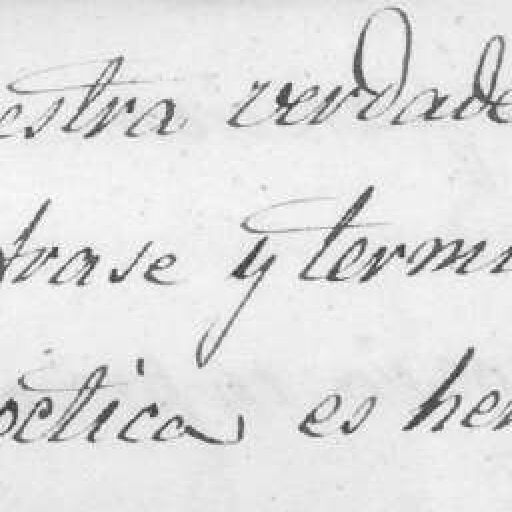 estra verdade
frase y termi
poetica es her